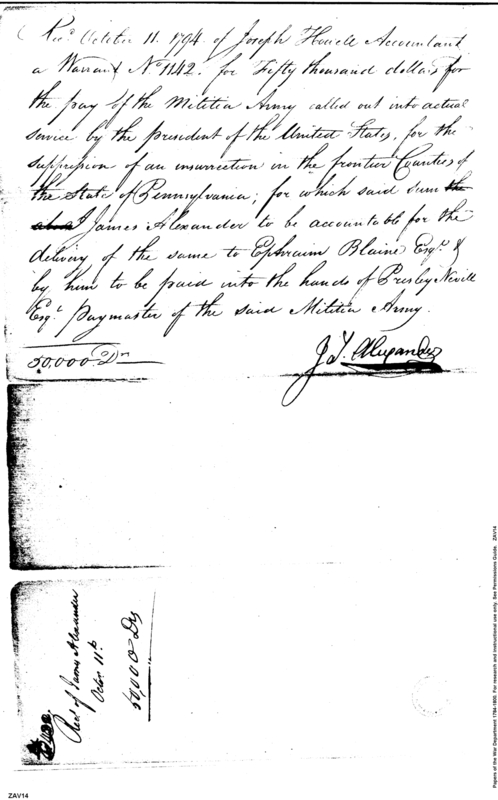 Recd. October 11. 1794. of Joseph Howell Accountant
a Warrant No. 1142. for Fifty thousand dollars for
the pay of the Militia Army called out into actual
service by the president of the United States, for the
suppression of an insurrection in the frontier Counties of
the State of Pennsylvania; for which said sum the
I James Alexander to be accountable for the
delivery of the same to Ephraim Blaine Esqr. &
by him to be paid into the hands of Presley Nevill
Esqr. Paymaster of the said Militia Army.
50,000. Drs
J Y. Alexander
Recd. of James Alexander
Octor. 11th
50,000 Drs
Papers of the War Department 1784-1800. For research and instructional use only. See Permissions Guide. ZAV14
ZAV14